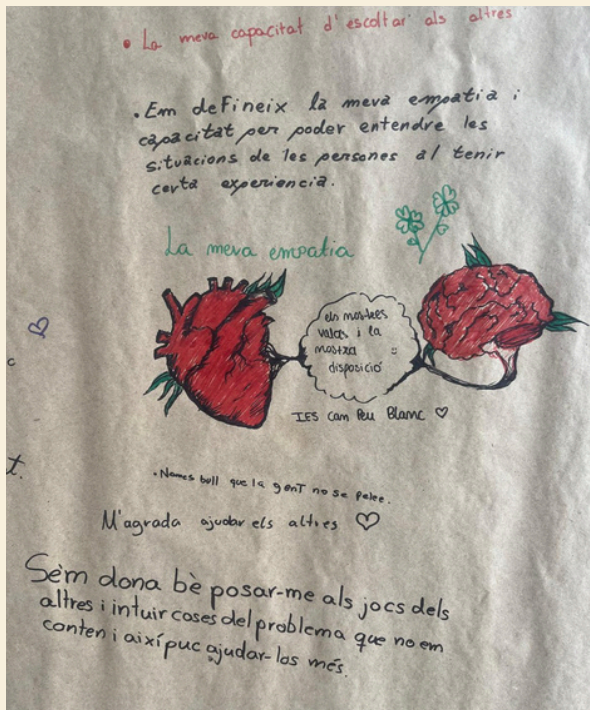 • La meva capacitat d'escoltar als altres
. Em deFineix la meva empatia i
capacitat per poder entendre les
situacions de les persones al tenir
certa experiencia.
La meva empatia
els nostres
valors i la
nostra
disposició
IES Can Peu Blanc ♡
c
t.
. Nomes bull que la genT no se pelee.
M'agrada ajudar els altres ♡
Sèm dona bè posar-me als jocs dels
altres i intuir coses del problema que no em
conten i així puc ajudar-los més.